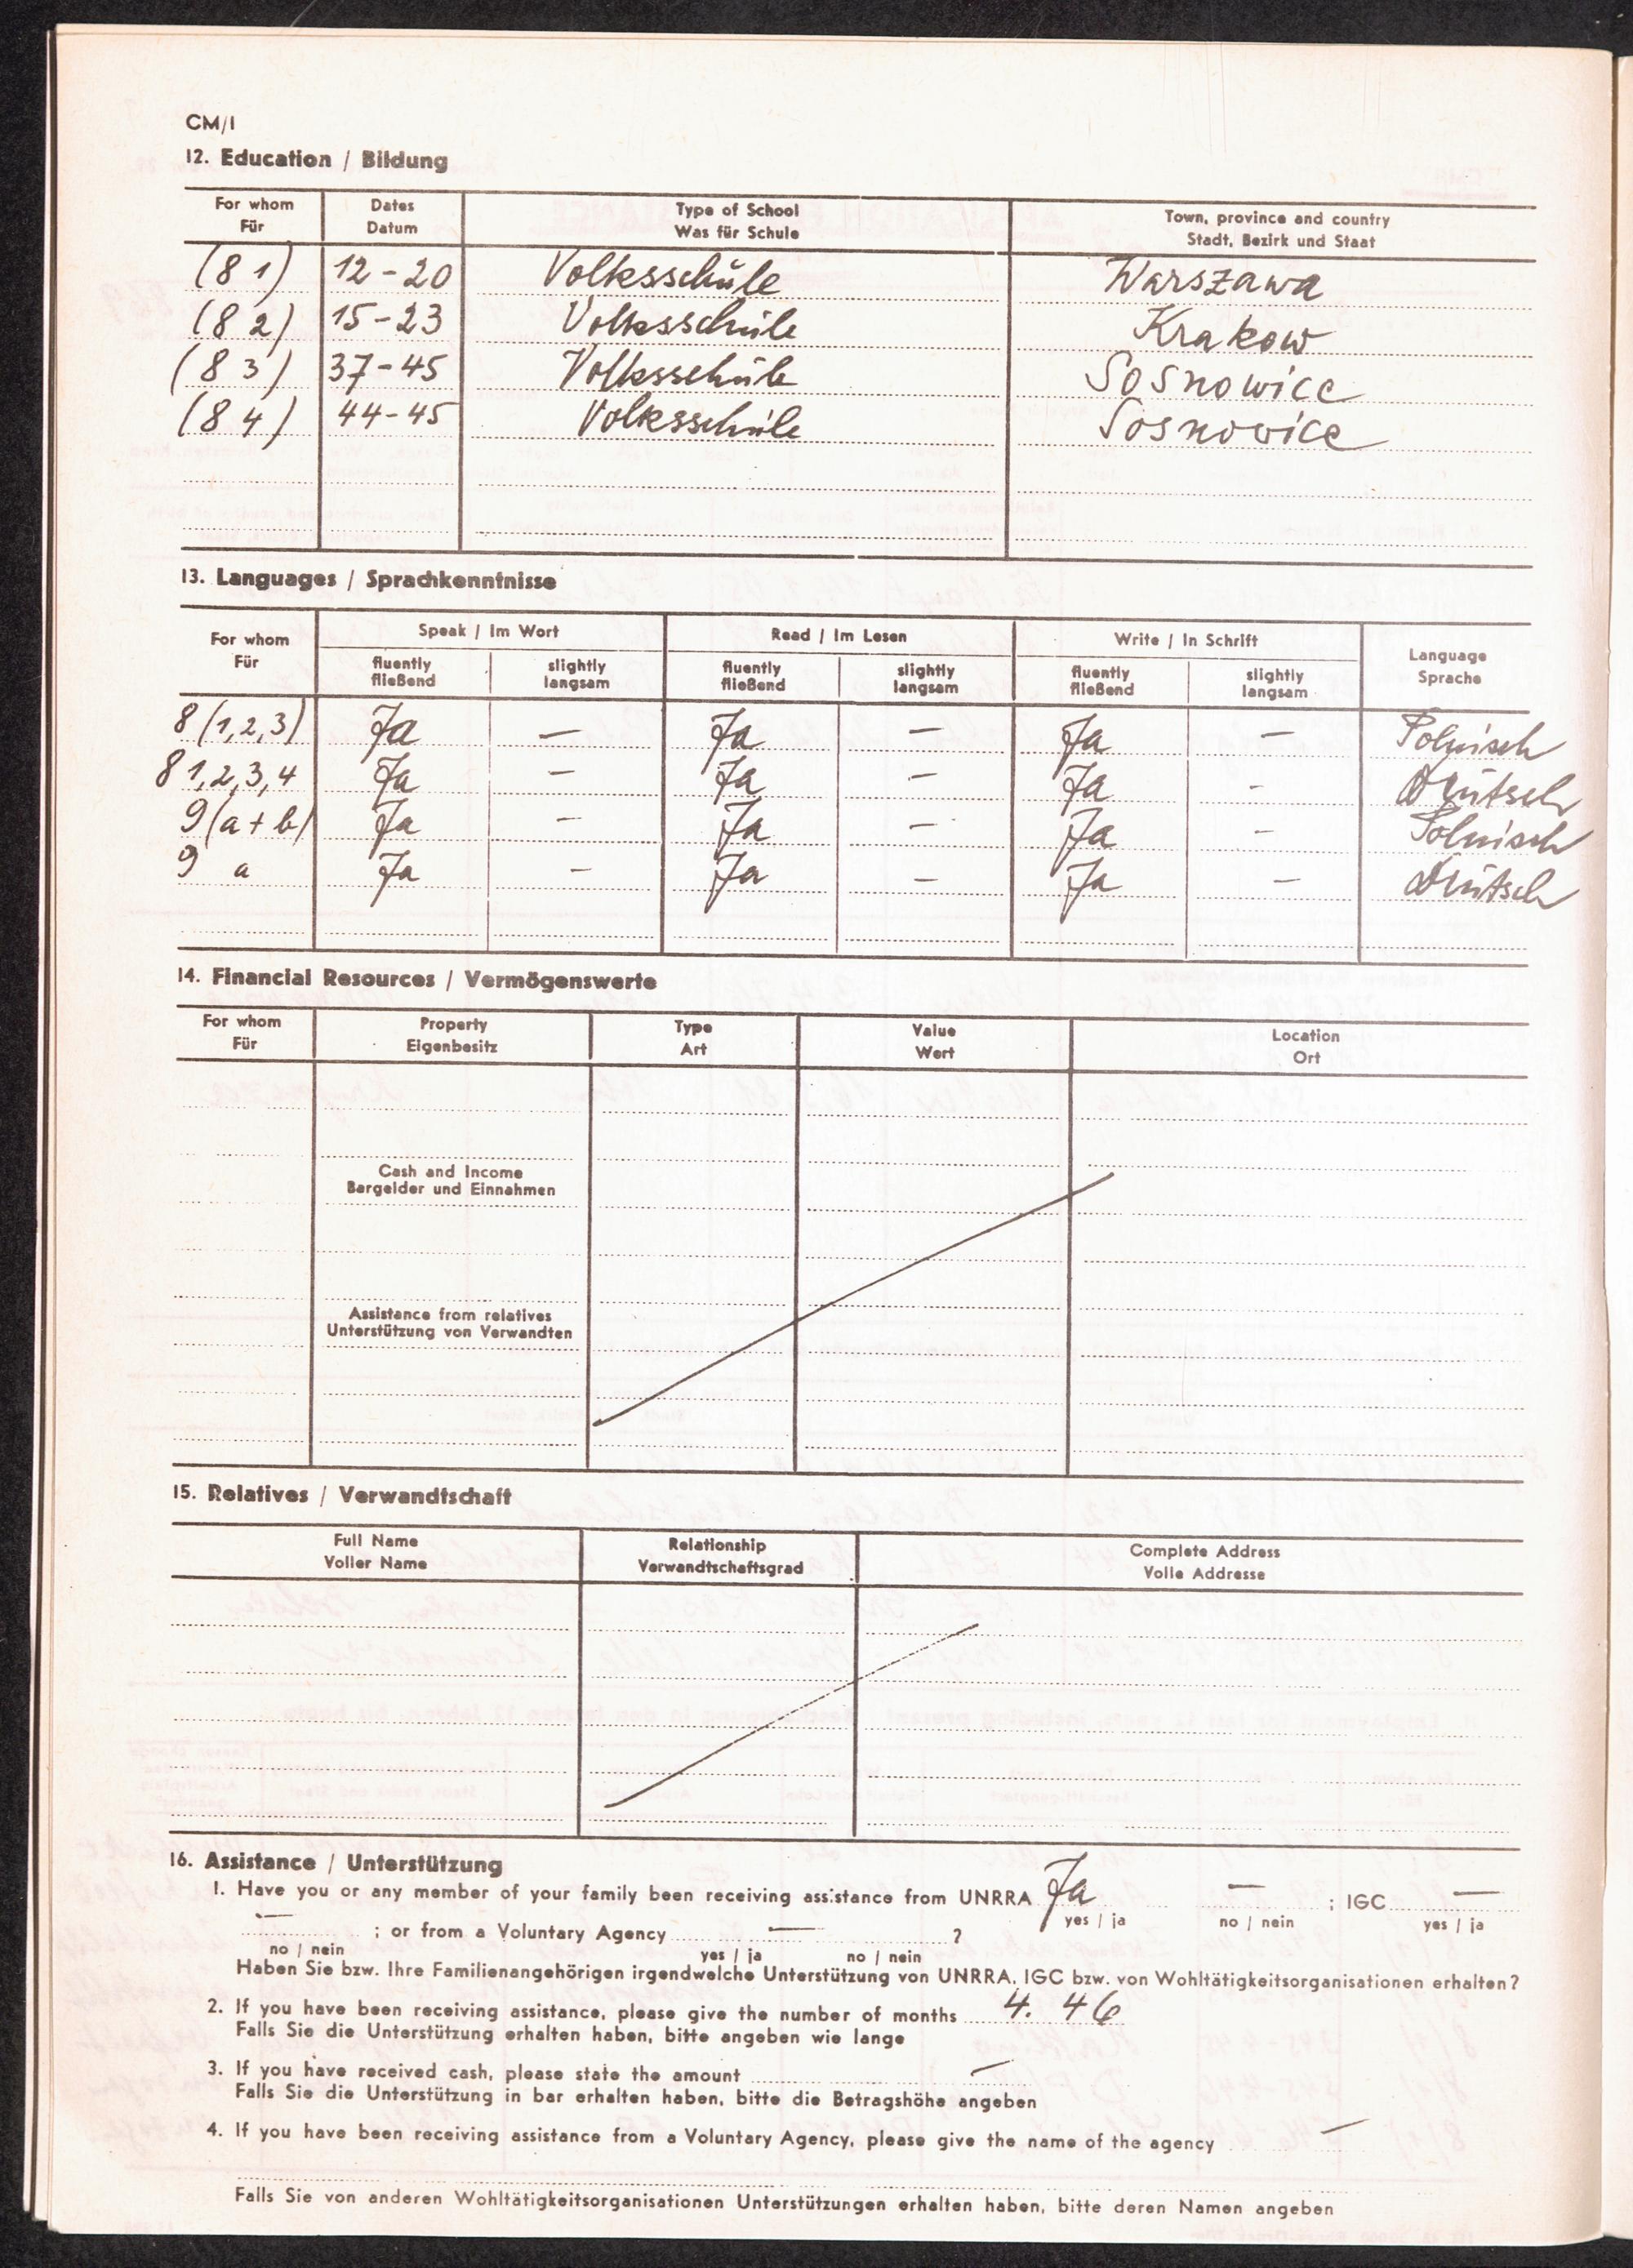 CM/1
12. Education / Bildung
For whom Für | Dates Datum | Type of School Was für Schule | Town, province and country Stadt, Bezirk und Staat
(8 1) 12-20 Volksschule Warszawa
(8 2) 15-23 Volksschule Krakow
(8 3) 37-45 Volksschule Sosnowice
(8 4) 44-45 Volksschule Sosnowice
13. Languages / Sprachkenntnisse
For whom Für | Speak / Im Wort | Read / Im Lesen | Write / In Schrift | Language Sprache
fluently fließend | slightly langsam | fluently fließend | slightly langsam | fluently fließend | slightly langsam
8 (1,2,3) Ja — Ja — Ja — Polnisch
8 1,2,3,4 Ja — Ja — Ja - Deutsch
9 (a + b) Ja — Ja — Ja — Polnisch
9 a Ja — Ja — Ja — Deutsch
14. Financial Resources / Vermögenswerte
For whom Für | Property Eigenbesitz | Type Art | Value Wert | Location Ort
Cash and Income
Bargelder und Einnahmen
Assistance from relatives
Unterstützung von Verwandten
15. Relatives / Verwandtschaft
Full Name Voller Name | Relationship Verwandtschaftsgrad | Complete Address Volle Addresse
16. Assistance / Unterstützung
1. Have you or any member of your family been receiving assistance from UNRRA Ja — ; IGC —
yes / ja no / nein yes / ja
— ; or from a Voluntary Agency — ?
no / nein yes / ja no / nein
Haben Sie bzw. Ihre Familienangehörigen irgendwelche Unterstützung von UNRRA, IGC bzw. von Wohltätigkeitsorganisationen erhalten?
2. If you have been receiving assistance, please give the number of months 4. 46
Falls Sie die Unterstützung erhalten haben, bitte angeben wie lange
3. If you have received cash, please state the amount —
Falls Sie die Unterstützung in bar erhalten haben, bitte die Betragshöhe angeben
4. If you have been receiving assistance from a Voluntary Agency, please give the name of the agency —
Falls Sie von anderen Wohltätigkeitsorganisationen Unterstützungen erhalten haben, bitte deren Namen angeben